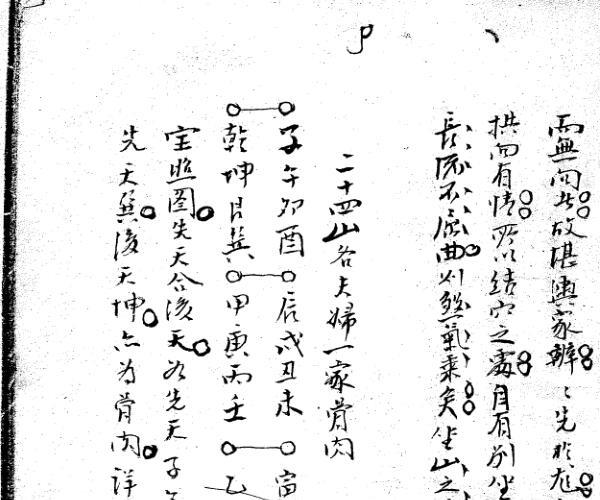 而無向者故堪輿家辨々先於龍
拱向有情所以結穴之處自有別坐
長流不屈曲則煞氣乘矣坐山之
二十四山各夫婦一家骨肉
子午卯酉 辰戌丑未
乾坤艮巽 甲庚丙壬 乙
宝照圖先天合後天如先天子
先天巽後天坤亦為骨肉詳